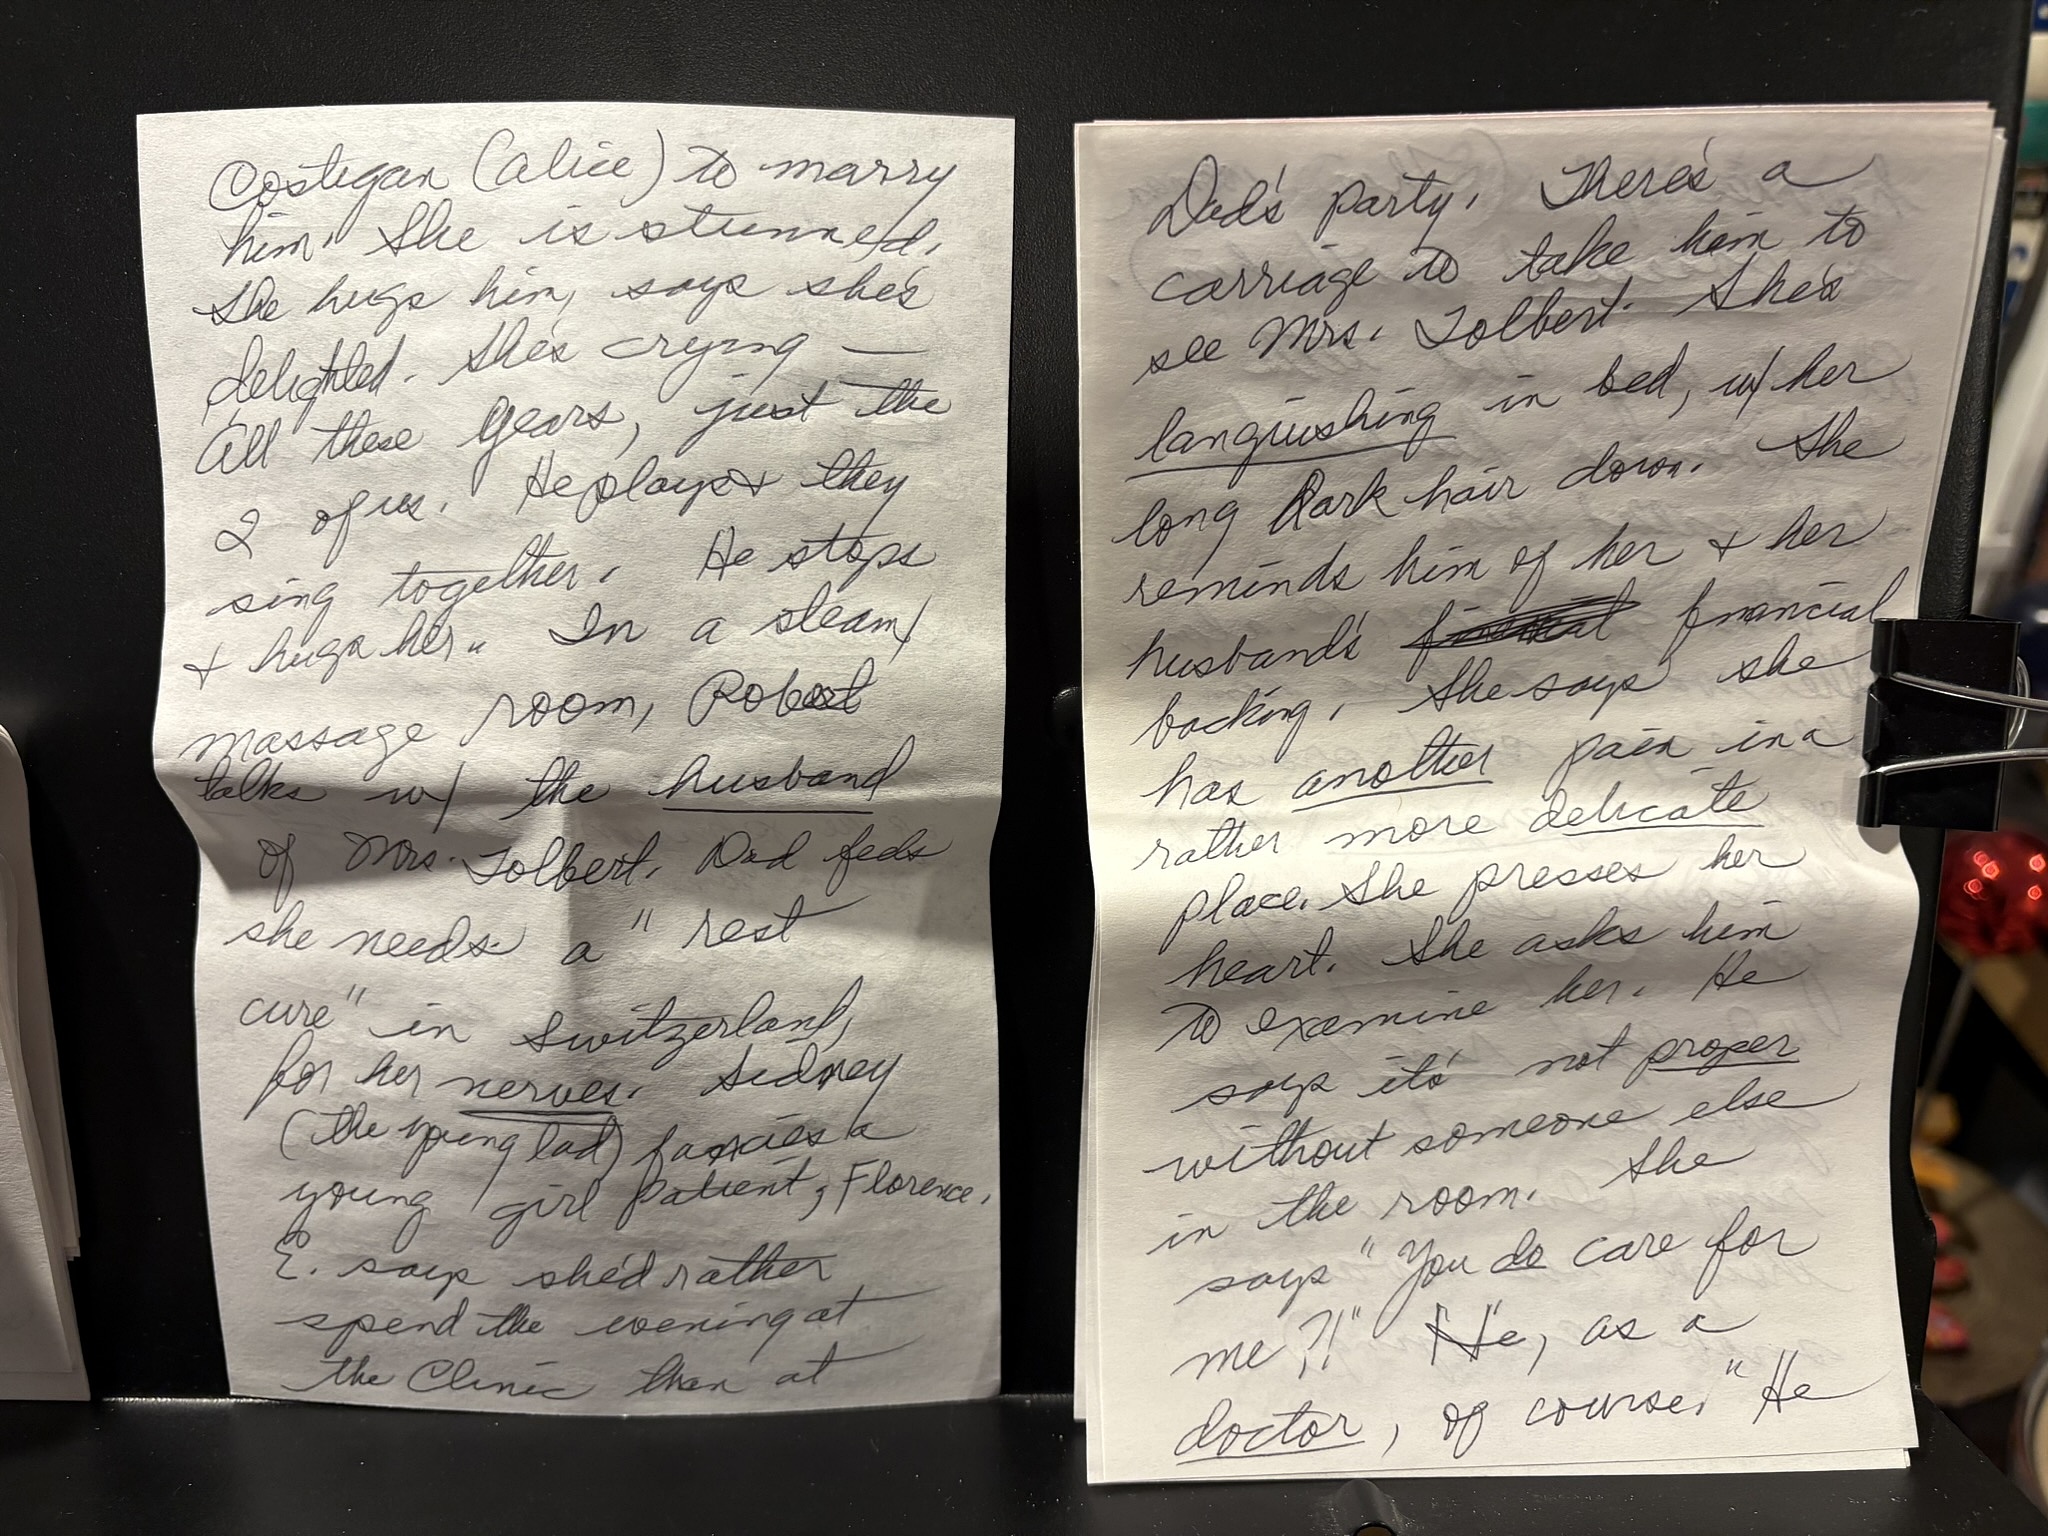 Costigan (Alice) to marry
him. She is stunned.
She hugs him, says she's
delighted. She's crying —
All these years, just the
2 of us. He plays & they
sing together. He stops
& hugs her. In a steam/
massage room, Robert
talks w/ the husband
of Mrs. Tolbert. Dad feels
she needs a "rest
cure" in Switzerland,
for her nerves. Sidney
(the young lad) fancies a
young girl patient, Florence.
E. says she'd rather
spend the evening at
the Clinic than at
Dad's party. There's a
carriage to take him to
see Mrs. Tolbert. She's
languishing in bed, w/ her
long dark hair down. She
reminds him of her & her
husband's financial
backing. She says she
has another pain in a
rather more delicate
place. She presses her
heart. She asks him
to examine her. He
says it's not proper
without someone else
in the room. She
says "You do care for
me?!" "He, as a
doctor, of course." He